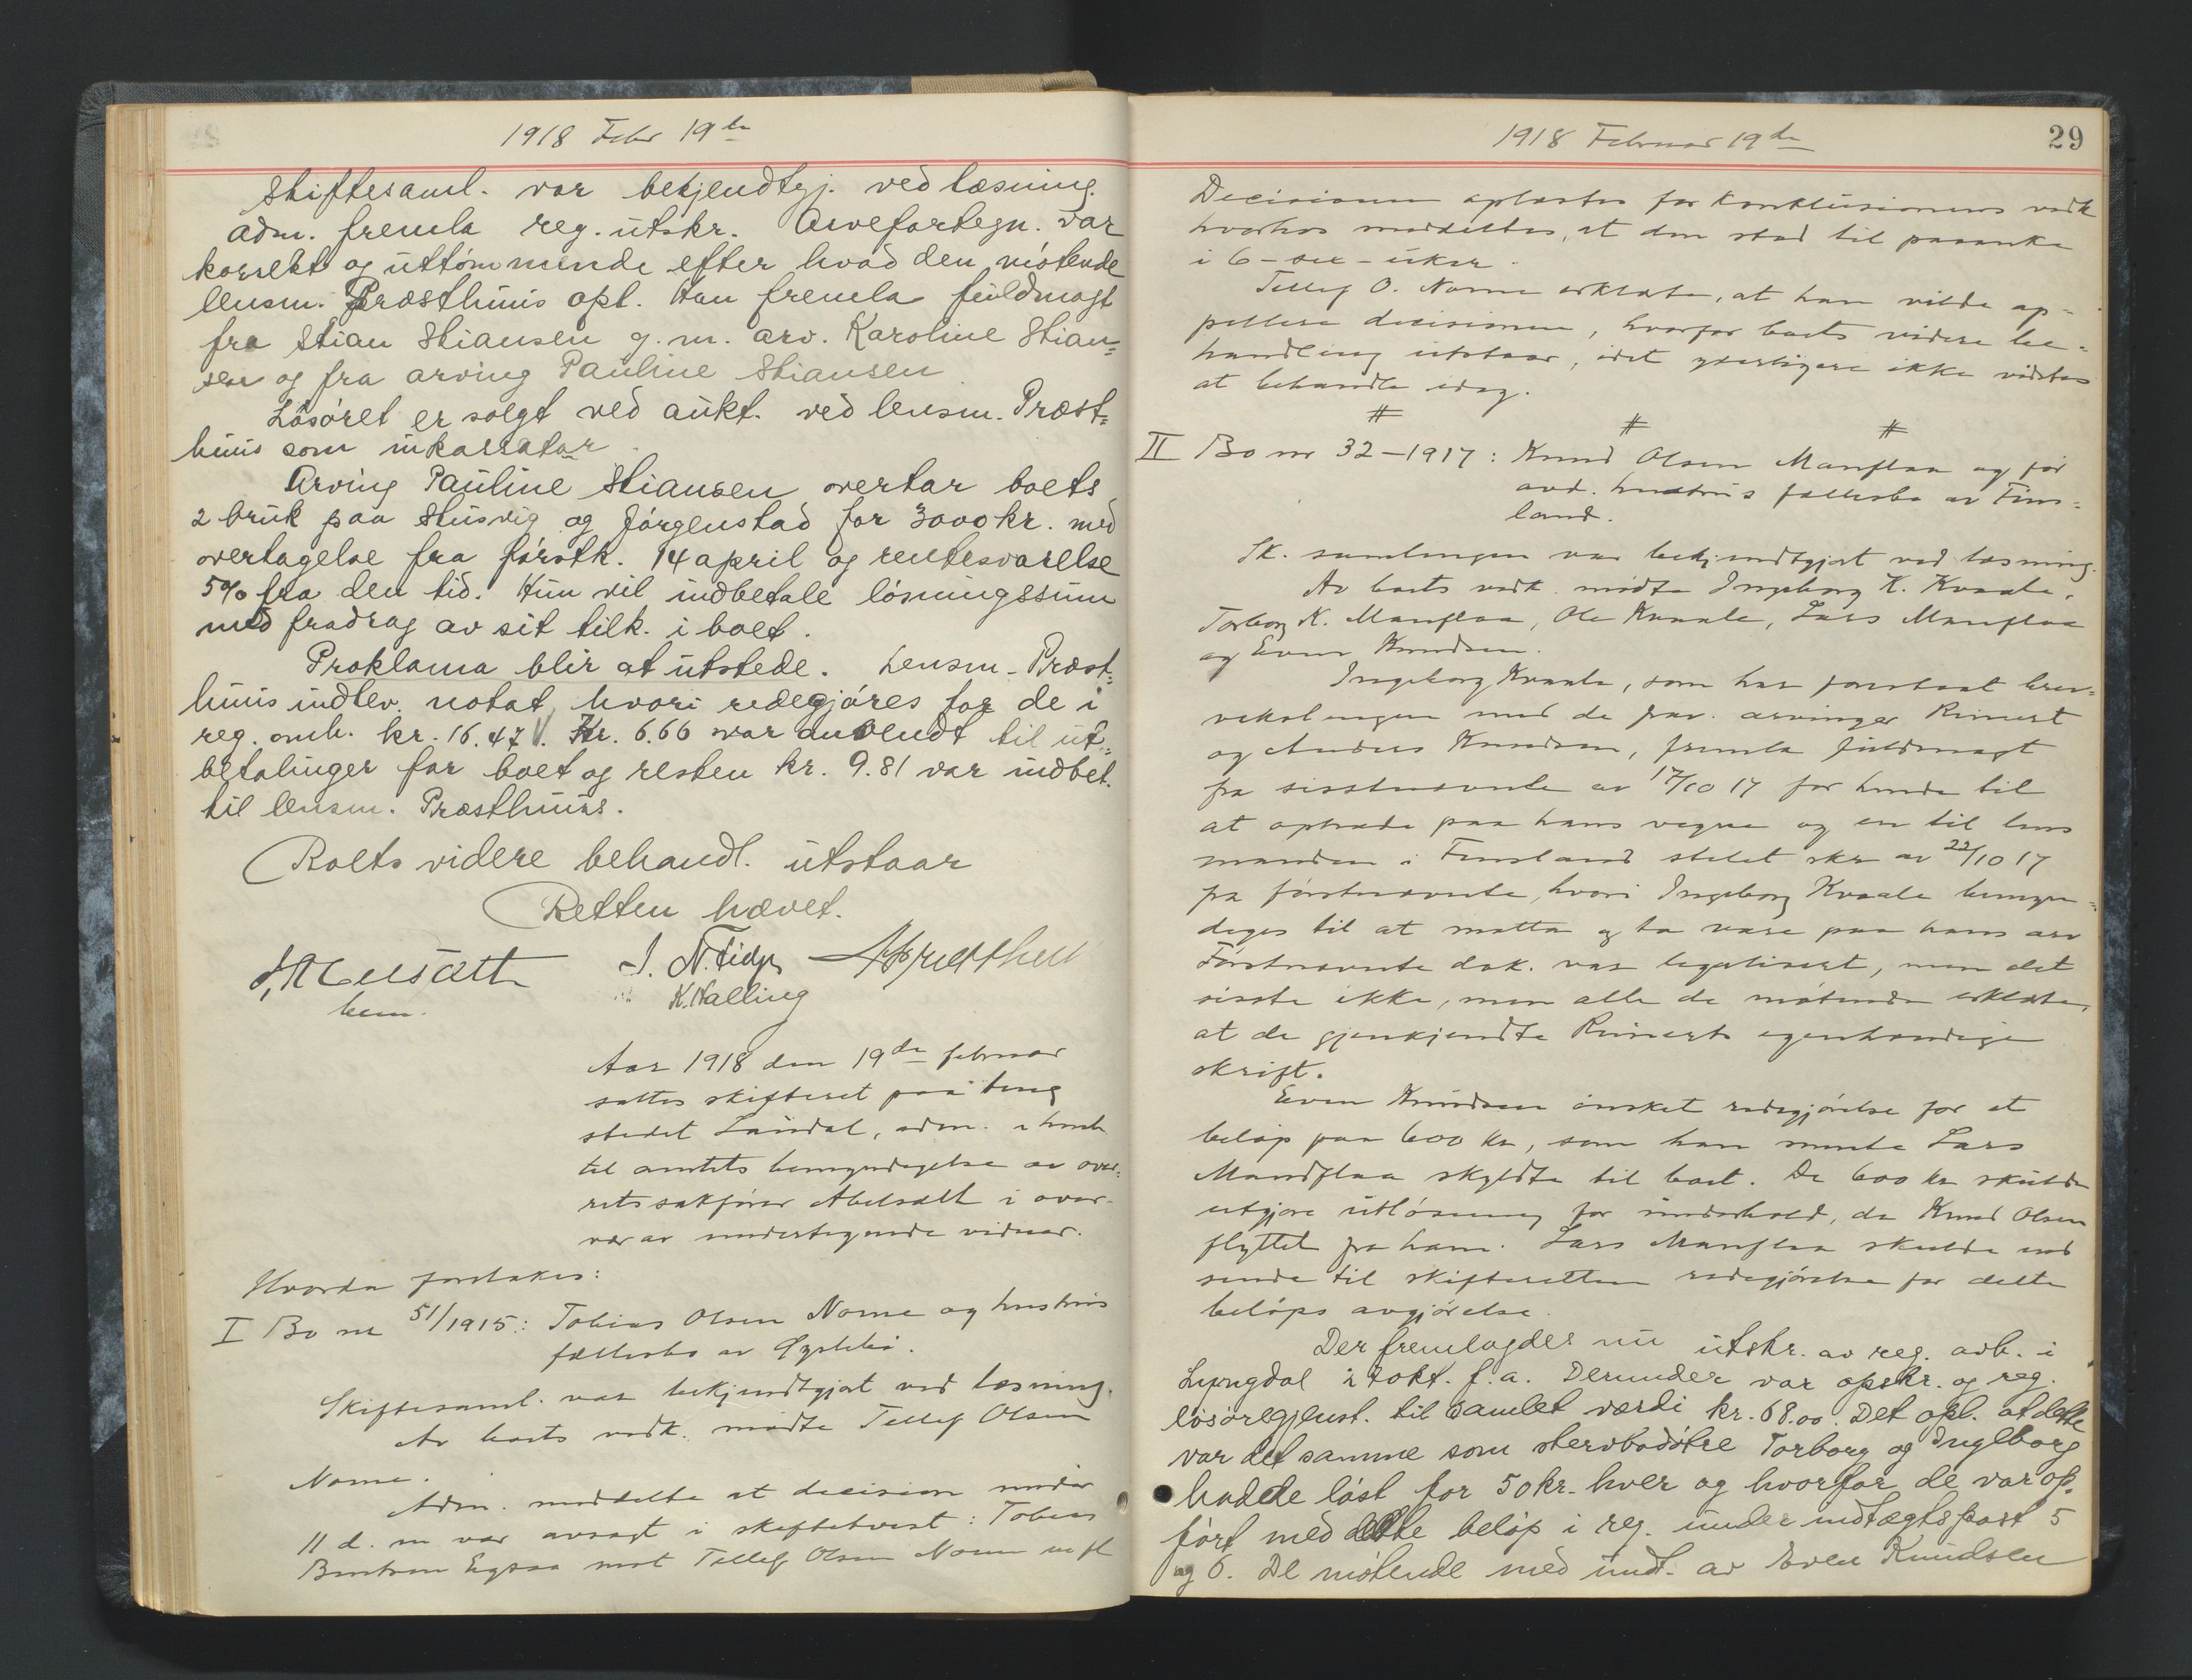 1918 Febr 19de
Skiftesaml. var bekjendtgj. ved læsning.
Adm. fremla reg. utskr. Arvefortegn. var
korrekt og uttømmende efter hvad den møtende
lensm. Præsthuus opl. Han fremla fuldmagt
fra Stian Stiansen g. m. arv. Karoline Stian-
sen og fra arving Pauline Stiansen
Løsøret er solgt ved aukt. ved lensm. Præst-
huus som inkassator.
Arving Pauline Stiansen overtar boets
2 bruk paa Stusvig og Jørgenstad for 3000 kr. med
overtagelse fra førstk. 14 april og rentesvarelse
5% fra den tid. Hun vil indbetale løsningssum
med fradrag av sit tilk. i boet.
Proklama blir at utstede. Lensm. Præst-
huus indlev. notat, hvori redegjøres for de i
reg. omh. kr. 16.47. Kr. 6.66 var anvendt til ut-
betalinger for boet og resten kr. 9.81 var indbet.
til lensm. Præsthuus.
Boets videre behandl. utstaar
Retten hævet.
J. N. Tidy
K. Halling
Aar 1918 den 19de februar
sattes skifteret paa ting
stedet Laudal, adm. i henh.
til amtets bemyndigelse av over-
retssakfører Abelsæth i over-
vær av undertegnede vidner.
Hvorda foretakes:
I Bo nr 51/1915: Tobias Olsen Nome og hustrus
fællesbo av Øyslebø.
Skiftesaml. var bekjendtgjort ved læsning.
Av boets vedk. møtte Tellef Olsen
Nome.
Adm. meddelte at decision under
11 d. m. var avsagt i skiftetvist: Tobias
mot Tellef Olsen Nome
1918 Februar 19de
29
Decisionen oplæstes for konklusionens vedk
hvorhos meddeltes, at den stod til paaanke
i 6 - sex - uker.
Tellef O. Nome erklærte, at han vilde ap-
pellere decisionen, hvorfor boets videre be-
handling utstaar, idet yderligere ikke vidstes
at behandle idag.
# # #
II Bo nr 32-1917: Knud Olsen Manflaa og før
avd. hustrus fællesbo av Fins-
land.
Sk. samlingen var bekjendtgjort ved læsning.
Av boets vedk. møtte Ingeborg K. Kvaale,
Torborg K. Manflaa, Ole Kvaale, Lars Manflaa
og Even Knudsen.
Ingeborg Kvaale, som har forestaat brev-
vekslingen med de frav. arvinger Reinert
og Anders Knudsen, fremla fuldmagt
fra sisstnævnte av 17/10 17 for hende til
at optræde paa hans vegne og en til lens
manden i Finsland stilet skr. av 22/10 17
fra førstnævnte, hvori Ingeborg Kvaale bemyn-
diges til at motta og ta vare paa hans arv
Førstnævnte dok. var legalisert, men det
sisste ikke, men alle de møtende erklærte,
at de gjenkjendte Reinerts egenhændige
skrift.
Even Knudsen ønsket redegjørelse for et
beløp paa 600 kr, som han mente Lars
Mandflaa skyldte til boet. De 600 kr skulde
utgjøre utløsning for underhold, da Knud Olsen
flyttet fra ham. Lars Manflaa skulde ind
sende til skifteretten redegjørelse for dette
beløps avgjørelse.
Der fremlagdes nu utskr. av reg. avh. i
Lyngdal 27 okt. f. a. Derunder var opskr. og reg.
løsøregjenst. til samlet værdi kr. 68.00. Det opl. at dette
var det samme som stervbodøtre Torborg og Ingeborg
hadde løst for 50 kr. hver og hvorfor de var op-
ført med dette beløp i reg. under indtægtspost 5
og 6. De møtende med undt. av Even Knudsen